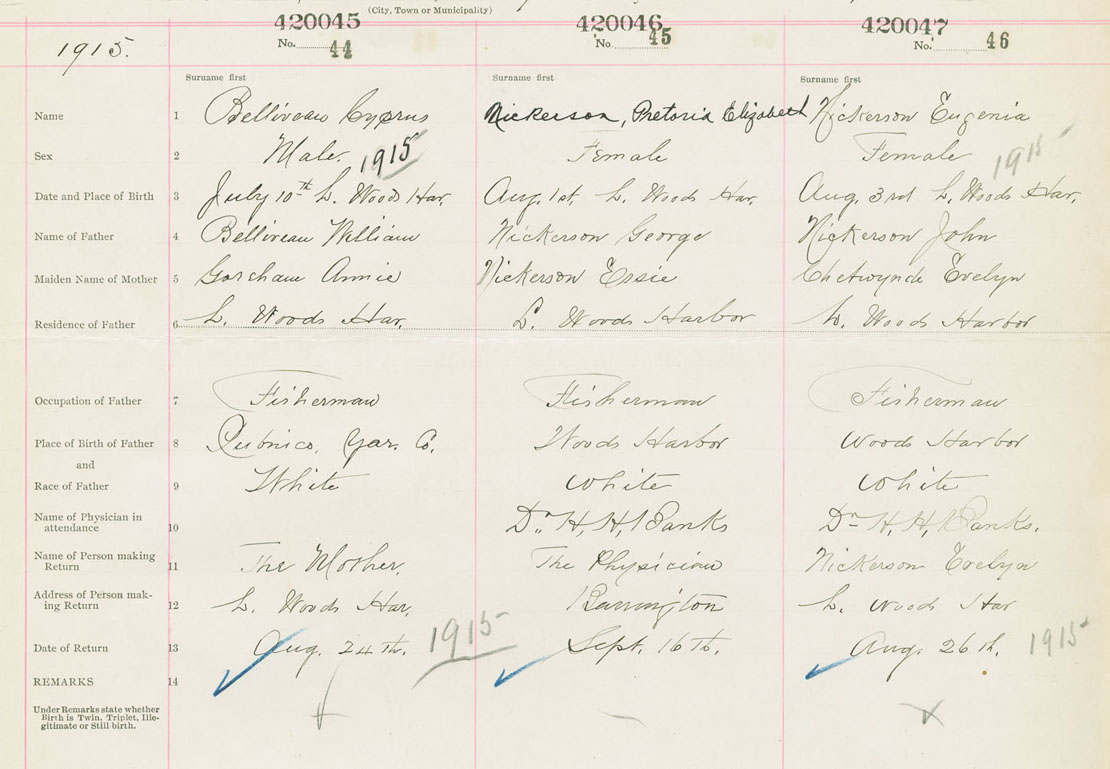 (City, Town or Municipality)
420045 420046 420047
1915. No. 44 No. 45 No. 46
Surname first Surname first Surname first
Name 1 Belliveau Cyprus Nickerson, Pretoria Elizabeth Nickerson Eugenia
Sex 2 Male. 1915 Female Female 1915
Date and Place of Birth 3 July 10th L. Wood Har. Aug. 1st. L. Woods Har. Aug. 3rd L. Woods Har.
Name of Father 4 Belliveau William Nickerson George Nickerson John
Maiden Name of Mother 5 Gorsham Annie Nickerson Essie Chetwynde Evelyn
Residence of Father 6 L. Woods Har. L. Woods Harbor L. Woods Harbor
Occupation of Father 7 Fisherman Fisherman Fisherman
Place of Birth of Father 8 Pubnico, Yar. Co. Woods Harbor Woods Harbor
and
Race of Father 9 White White White
Name of Physician in
attendance 10 Dr. H. H. Banks Dr. H. H. Banks.
Name of Person making
Return 11 The Mother. The Physician Nickerson Evelyn
Address of Person mak-
ing Return 12 L. Woods Har. Barrington L. Woods Har
Date of Return 13 Aug. 24th. 1915 Sept. 16th. Aug. 26th. 1915
REMARKS 14
Under Remarks state whether
Birth is Twin, Triplet, Ille-
gitimate or Still-birth.